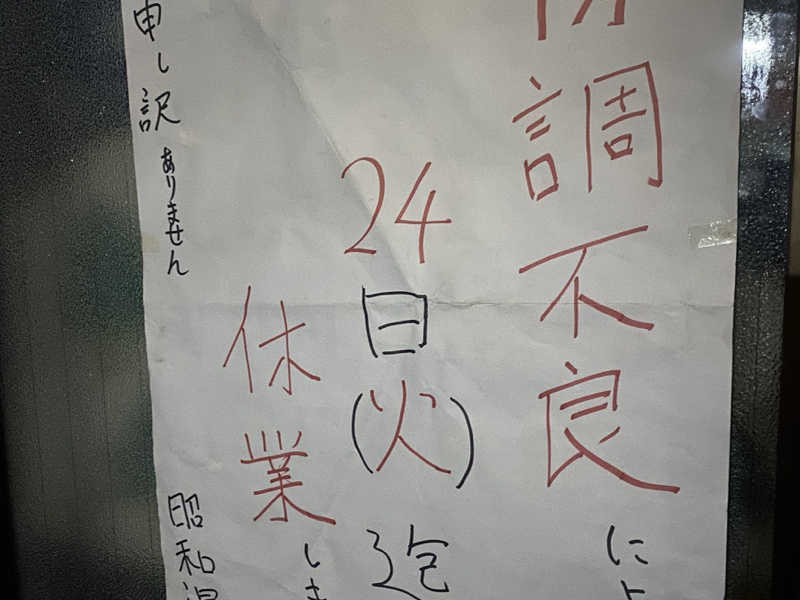 調不良によ
24日(火)迄
休業しま
申し訳ありません
昭和温